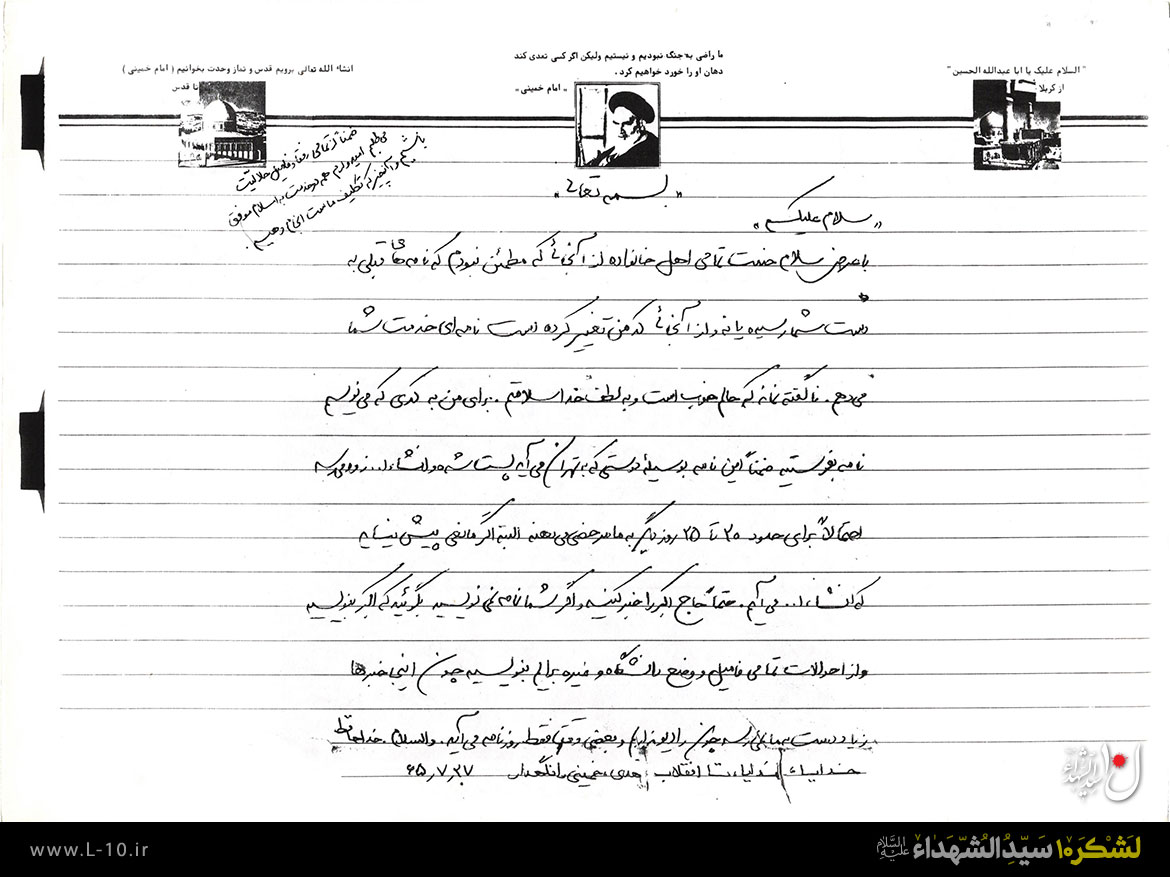 ما راضی به جنگ نبودیم و نیستیم ولیکن اگر کسی تعدی کند
دهان او را خورد خواهیم کرد.
« امام خمینی »
" السلام علیک یا ابا عبدالله الحسین "
از کربلا
انشاء الله تعالی برویم قدس و نماز وحدت بخوانیم ( امام خمینی )
تا قدس
« بسمه تعالی »
« سلام علیکم »
با عرض سلام خدمت تمامی اهل خانواده از آنجائی که مطمئن نبودم که نامه های قبلی به
دست شما رسیده یا نه و از آنجائی که من تغییر کرده است نامه‌ای خدمت شما
می‌دهم. ناگفته نمانه که حالم خوب است و به لطف خدا سلامتم. برای من به کدی که می‌نویسم
نامه بفرستید ضمناً این نامه بوسیله دوستی که به تهران می‌آید پست شده و انشاءا... زود می‌رسه
احتمالاً برای حدود ۲۰ تا ۲۵ روز دیگر به ما مرخصی می‌دهند البته اگر مانعی پیش نیاید
که انشاءا... می‌آیم. حتماً حاج اکبر را خبر کنید و اگر شما نامه نمی‌نویسید بگوئید که اکبر بنویسید
و از احوالات تمامی فامیل و وضع دانشگاه و غیره برایم بنویسید چون اینجا خبرها
زیاد دست به ما نمی‌رسه چون رادیو نداریم و بعضی وقتها فقط روزنامه می‌آید. والسلام خداحافظ
خدایا خدایا تا انقلاب مهدی خمینی را نگهدار ۶۵٫۷٫۲۷
ضمناً از تمامی رفقا و فامیل حلالیت
می‌طلبم امیدوارم همه در خدمت به اسلام موفق
باشیم و آنچیزی که تکلیف ماست انجام دهیم.
www.L-10.ir
لشکر ۱۰ سیّدالشّهداء علیه السّلام